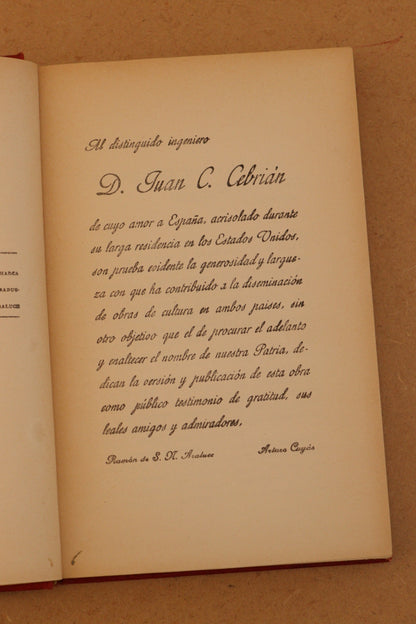 Al distinguido ingeniero
D. Juan C. Cebrián
de cuyo amor a España, acrisolado durante
su larga residencia en los Estados Unidos,
son prueba evidente la generosidad y largue-
za con que ha contribuido a la diseminación
de obras de cultura en ambos paises, sin
otro objetivo que el de procurar el adelanto
y enaltecer el nombre de nuestra Patria, de-
dican la versión y publicación de esta obra
como público testimonio de gratitud, sus
leales amigos y admiradores,
Ramón de S. N. Araluce
Arturo Cuyás